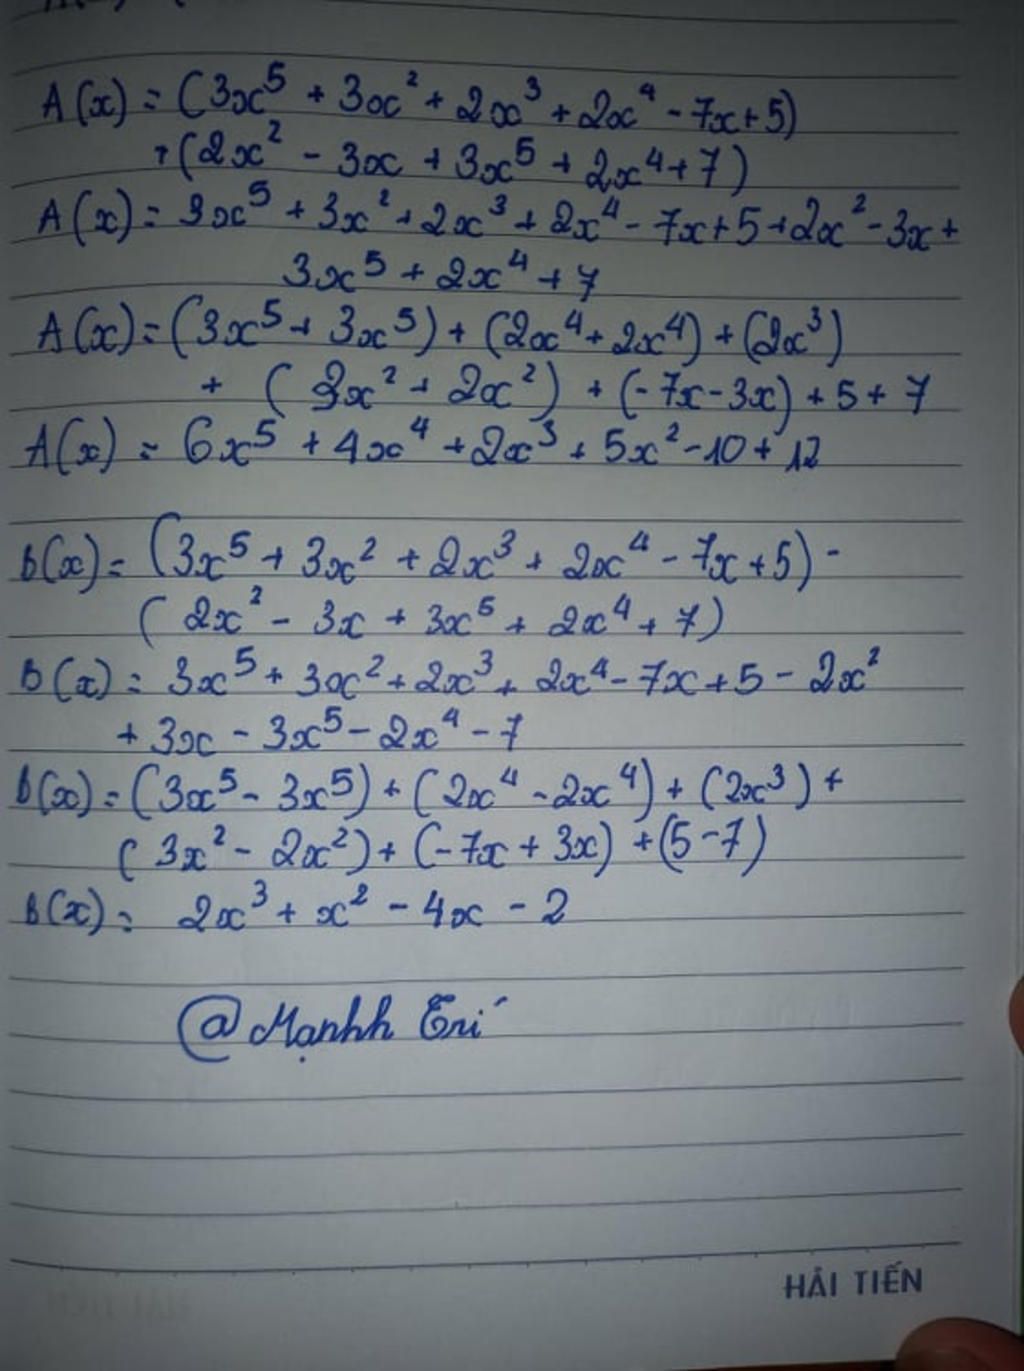 A(x) = (3x⁵ + 3x² + 2x³ + 2x⁴ - 7x + 5)
+ (2x² - 3x + 3x⁵ + 2x⁴ + 7)
A(x) = 3x⁵ + 3x² + 2x³ + 2x⁴ - 7x + 5 + 2x² - 3x +
3x⁵ + 2x⁴ + 7
A(x) = (3x⁵ + 3x⁵) + (2x⁴ + 2x⁴) + (2x³)
+ (3x² + 2x²) + (-7x - 3x) + 5 + 7
A(x) = 6x⁵ + 4x⁴ + 2x³ + 5x² - 10 + 12
B(x) = (3x⁵ + 3x² + 2x³ + 2x⁴ - 7x + 5) -
(2x² - 3x + 3x⁵ + 2x⁴ + 7)
B(x) = 3x⁵ + 3x² + 2x³ + 2x⁴ - 7x + 5 - 2x²
+ 3x - 3x⁵ - 2x⁴ - 7
B(x) = (3x⁵ - 3x⁵) + (2x⁴ - 2x⁴) + (2x³) +
(3x² - 2x²) + (-7x + 3x) + (5 - 7)
B(x) = 2x³ + x² - 4x - 2
@Mạnhh Eri
HẢI TIẾN